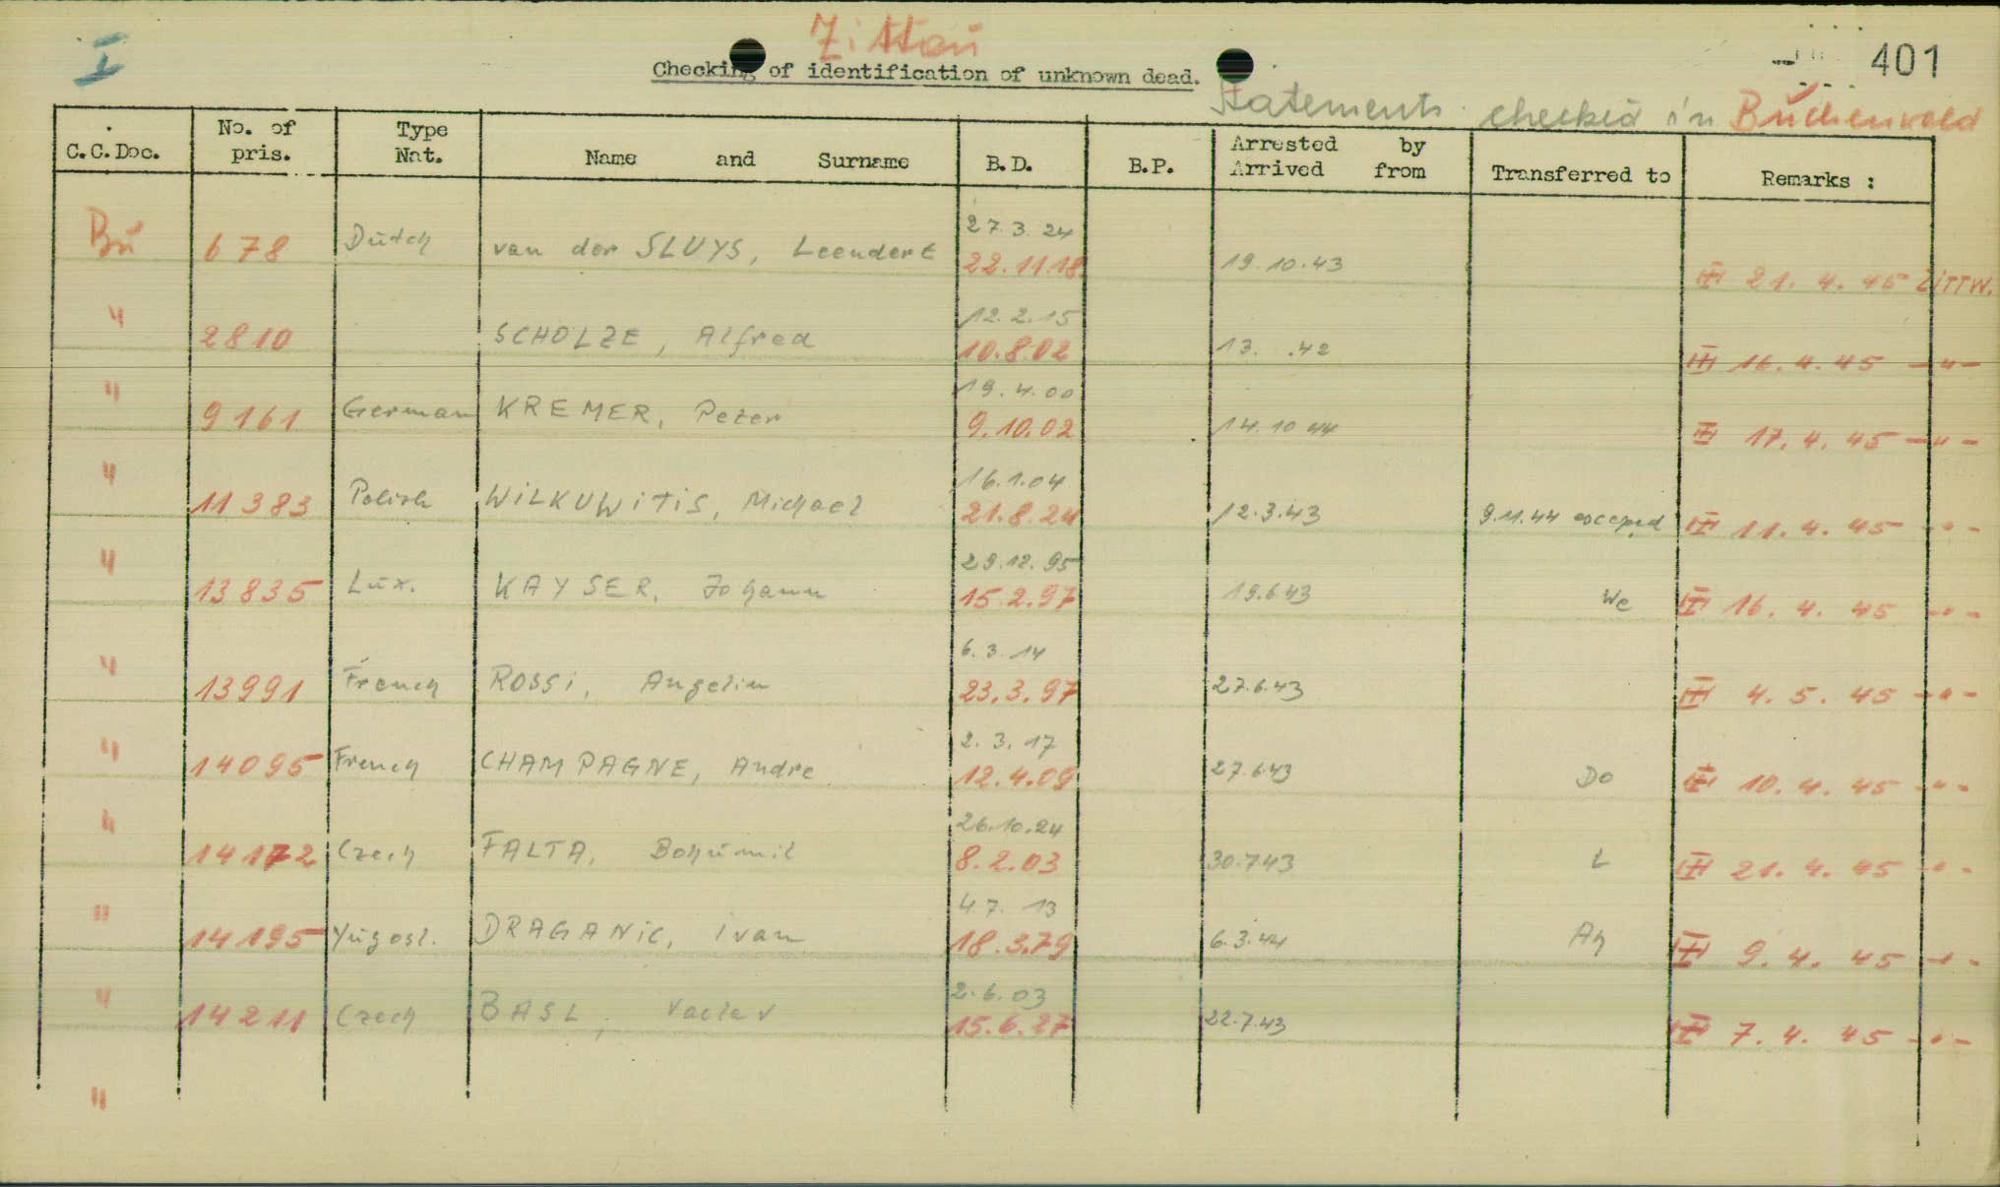 I
Zittau
401
Checking of identification of unknown dead.
Statements checked in Buchenwald
C.C.Doc. No. of pris. Type Nat. Name and Surname B.D. B.P. Arrested by Arrived from Transferred to Remarks :
27.3.24
Bu 678 Dutch van der SLUYS, Leendert 22.11.18 19.10.43 21.4.45 Zittw.
12.2.15
" 2810 SCHOLZE, Alfred 10.8.02 13. .42 16.4.45 -"-
19.4.00
" 9161 German KREMER, Peter 9.10.02 14.10 44 17.4.45 -"-
16.1.04
" 11383 Polish WILKUWITIS, Michael 21.8.24 12.3.43 9.11.44 escaped 11.4.45 -"-
29.12.95
" 13835 Lux. KAYSER, Johann 15.2.97 19.6.43 We 16.4.45 -"-
6.3.14
" 13991 French ROSSI, Angelin 23.3.97 27.6.43 4.5.45 -"-
2.3.17
" 14095 French CHAMPAGNE, Andre 12.4.09 27.6.43 Do 10.4.45 -"-
26.10.24
" 14172 Czech FALTA, Bohumil 8.2.03 30.7.43 L 21.4.45 -"-
4.7.13
" 14195 Yugosl. DRAGANIC, Ivan 18.3.79 6.3.44 Ah 9.4.45 -"-
2.6.03
" 14211 Czech BASL, Vaclav 15.6.27 22.7.43 7.4.45 -"-
"